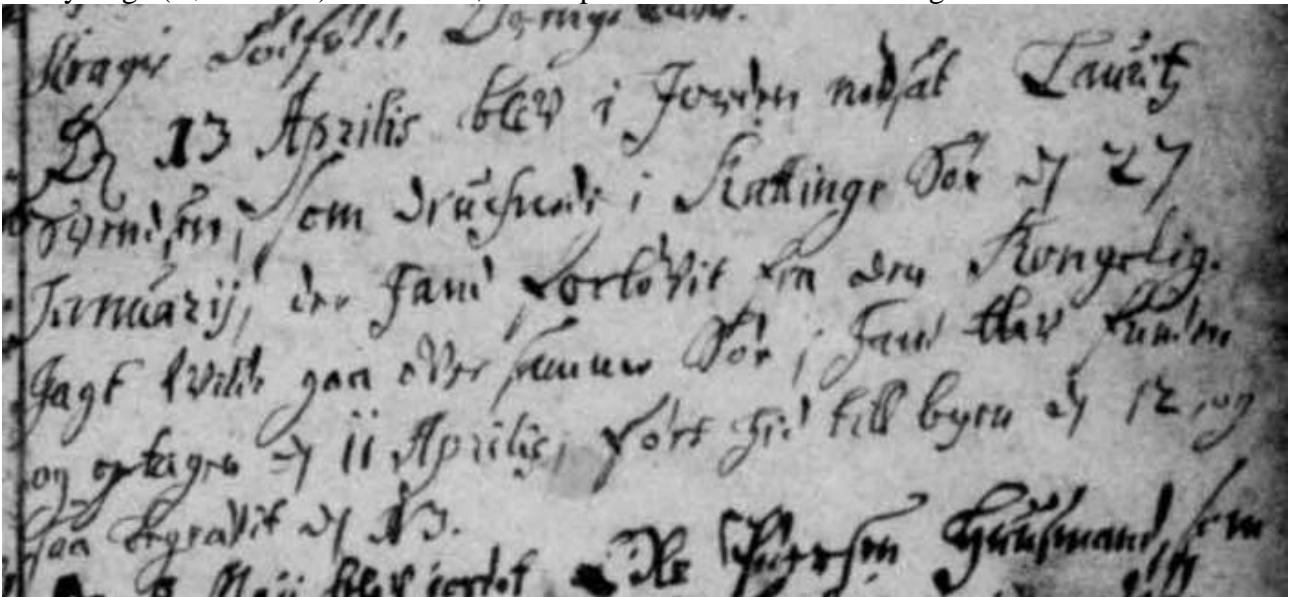 Kragis
D 13 Aprilis blev i Jorden nedsat Lauritz
Svendsen, som druchnede i Kattinge Søe d 27
Januarij, der hand forlovit fra den Kongelig.
Jagt vilde gaa over samme Søe, hand blev funden
og optagen d 11 Aprilis, ført hid till byen d 12, og
saa begravit d 13.
Maij blev jordet Peersen Huusmand, som